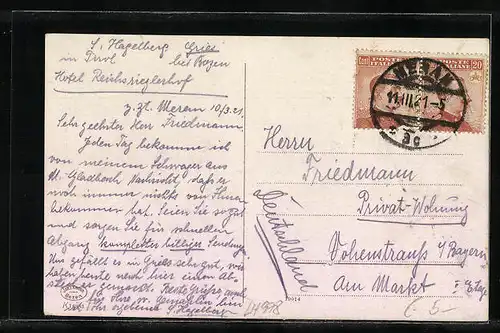 S. Hagelberg Gries
in Tirol bei Bozen
Hotel Reichsrieglerhof
z. Zt. Meran 10/3.21.
Sehr geehrter Herr Friedmann.
Jeden Tag bekomme ich
von meinem Schwager aus
M. Gladbach Nachricht, daß er
noch immer nichts von Ihnen
bekommen hat. Seien Sie so gut
und sorgen Sie für schnellen
Abgang kompletter Sendung.
Uns gefällt es in Gries sehr gut, wir
haben heute nach hier einen Ab-
stecher gemacht. Beste Grüße auch
für Ihre Gemahlin
Ihr ergebener S. Hagelberg
POSTE ITALIANE
20
MERAN
11.III.21-5
Herrn
Friedmann
Privat-Wohnung
Vohenstrauß i/Bayern
Am Markt I Etg.
Deutschland
9014
C. 5-